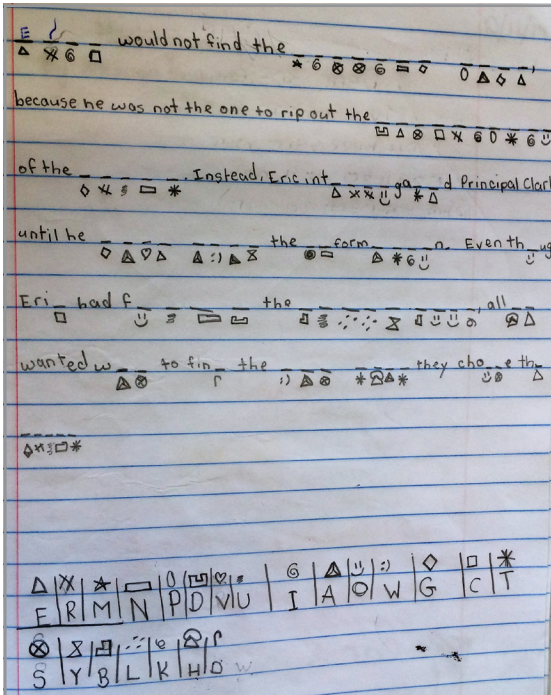 E
would not find the ,
because he was not the one to rip out the
of the . Instead, Eric int ga d Principal Clark
until he the form n. Even th ug
Eri had f the , all
wanted w to fin the they cho e th
E R M N P D V U I A O W G C T
S Y B L K H D W